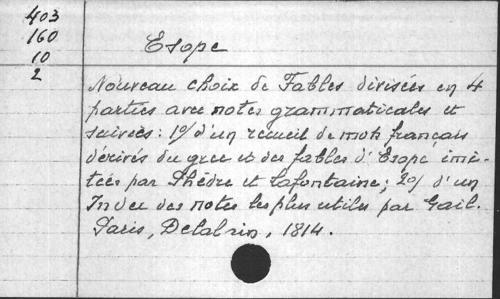 403
160
10
2
Esope
Nouveau choix de Fables divisées en 4
parties avec notes grammaticales et
suivies: 1o/ d'un recueil de mots français
dérivés du grec et des fables d'Esope imi-
teés par Phèdre et Lafontaine; 2o/ d'un
Index des notes les plus utiles par Gail.
Paris, Delalain, 1814.